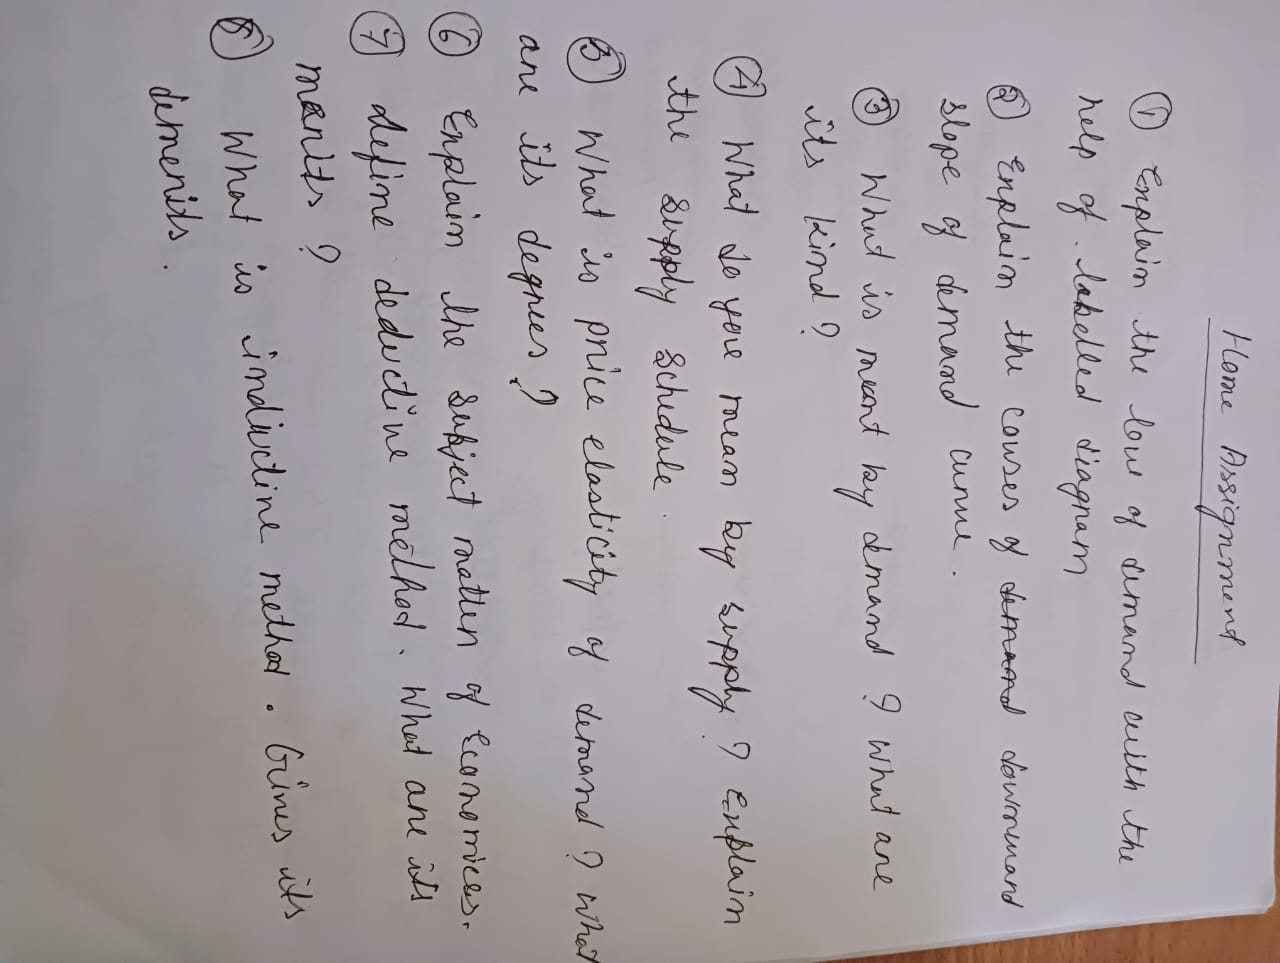 Home Assignment
① Explain the law of demand with the
help of labelled diagram
② Explain the causes of demand downward
slope of demand curve.
③ What is meant by demand ? What are
its kind ?
④ What do you mean by supply ? Explain
the supply schedule.
⑤ What is price elasticity of demand ? What
are its degrees ?
⑥ Explain the subject matter of Economics.
⑦ define deductive method. What are its
merits ?
⑧ What is inductive method. Gives its
demerits.